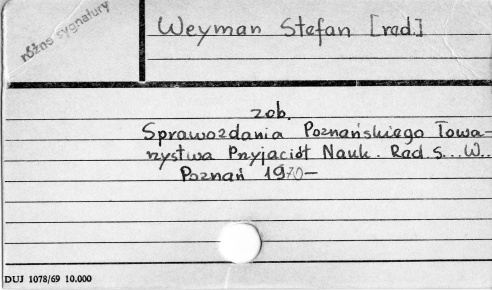 różne sygnatury
Weyman Stefan [red.]
zob.
Sprawozdania Poznańskiego Towa-
rzystwa Przyjaciół Nauk. Red. S... W...
Poznań 1970—
DUJ 1078/69 10.000